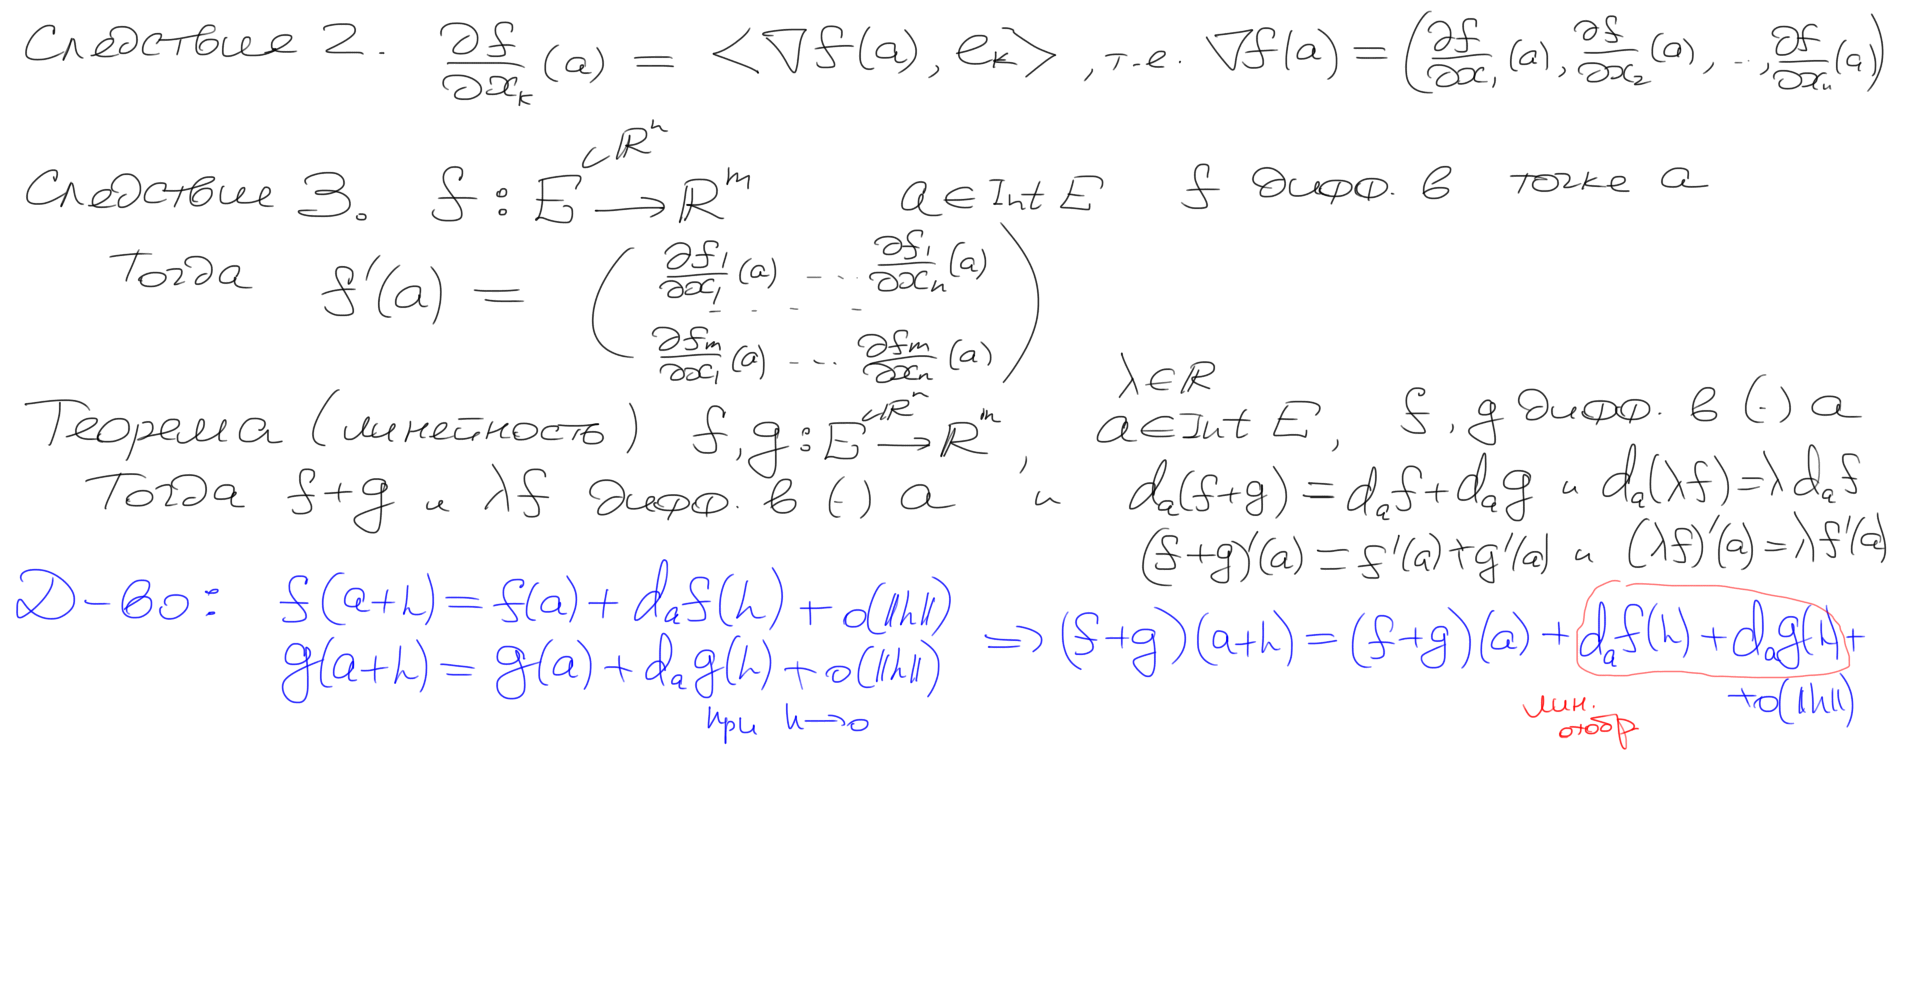 Следствие 2. ∂f/∂x_k (a) = <∇f(a), e_k>, т.е. ∇f(a) = (∂f/∂x_1 (a), ∂f/∂x_2 (a), ..., ∂f/∂x_n (a))
Следствие 3. f : E ⊂ℝⁿ → ℝᵐ a ∈ Int E f дифф. в точке a
Тогда f'(a) = ( ∂f_1/∂x_1 (a) ... ∂f_1/∂x_n (a)
. - - - -
∂f_m/∂x_1 (a) ... ∂f_m/∂x_n (a) )
Теорема (линейность) f, g : E ⊂ℝⁿ → ℝᵐ, λ ∈ ℝ a ∈ Int E, f, g дифф. в (·) a
Тогда f+g и λf дифф. в (·) a и d_a(f+g) = d_a f + d_a g и d_a(λf) = λ d_a f
(f+g)'(a) = f'(a) + g'(a) и (λf)'(a) = λf'(a)
Д-во: f(a+h) = f(a) + d_a f(h) + o(‖h‖)
g(a+h) = g(a) + d_a g(h) + o(‖h‖)
при h→0
⇒ (f+g)(a+h) = (f+g)(a) + d_a f(h) + d_a g(h) +
+ o(‖h‖)
лин.
отобр